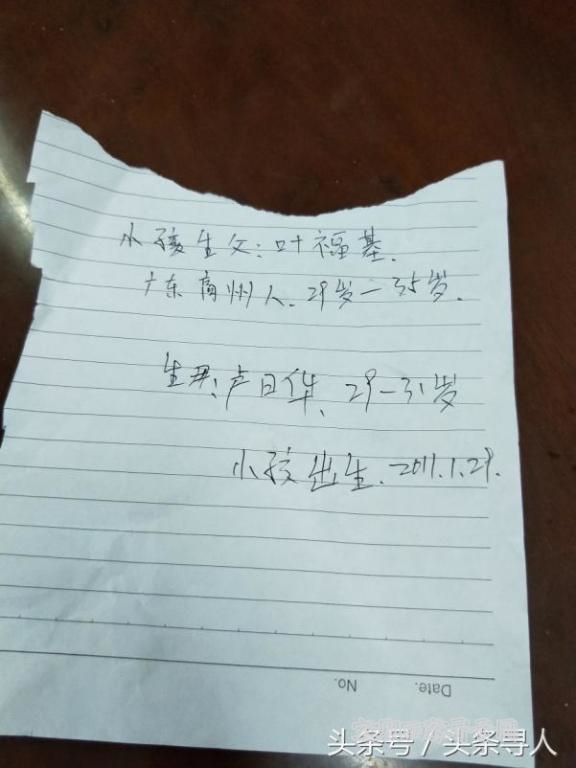 小孩生父:叶福基.
广东高州人、29岁—35岁.
生母:卢日华、29—31岁
小孩出生.2011.1.29.
No.
Date.
头条号 / 头条寻人